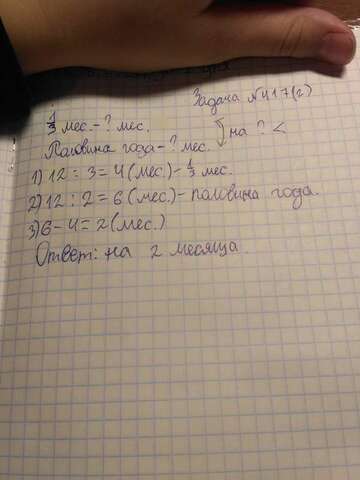 Задача №417(г)
1/3 мес. - ? мес.
Половина года - ? мес. на ? <
1) 12 : 3 = 4 (мес.) - 1/3 мес.
2) 12 : 2 = 6 (мес.) - половина года.
3) 6 - 4 = 2 (мес.)
Ответ: на 2 месяца.